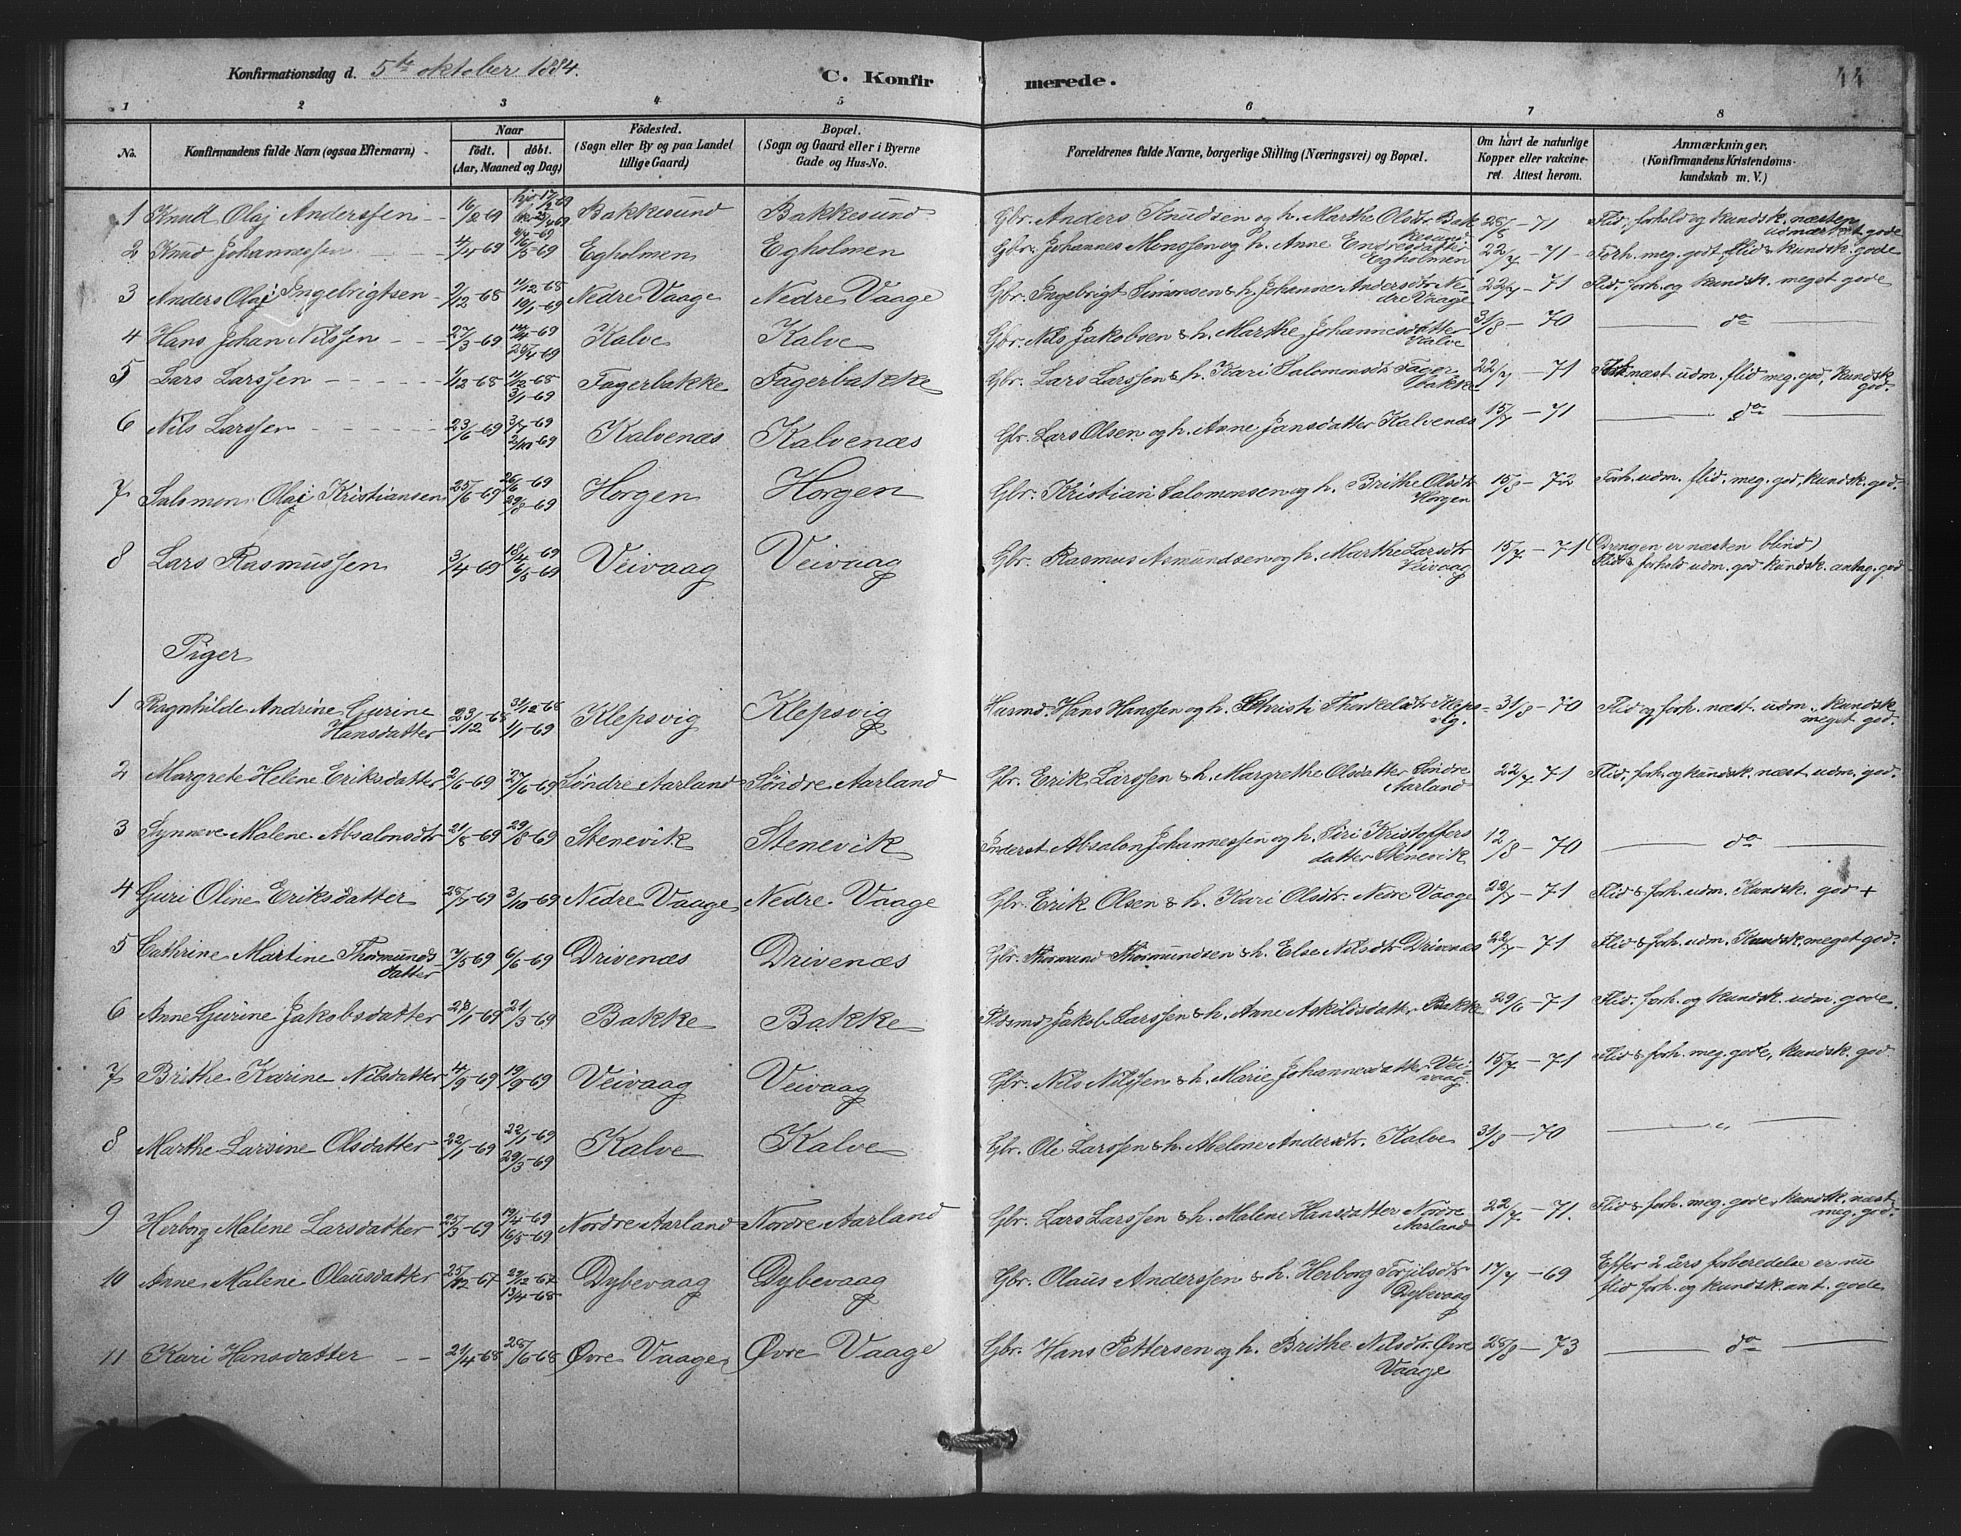 Konfirmationsdag d. 5te oktober 1884. C. Konfirmerede. 44
1 2 3 4 5 6 7 8
No. Konfirmandens fulde Navn (ogsaa Efternavn) Naar födt. döbt. (Aar, Maaned og Dag) Födested. (Sogn eller By og paa Landet tillige Gaard) Bopæl. (Sogn og Gaard eller i Byerne Gade og Hus-No. Forældrenes fulde Navne, borgerlige Stilling (Næringsvei) og Bopæl. Om havt de naturlige Kopper eller vakcineret. Attest herom. Anmærkninger. (Konfirmandens Kristendomskundskab m. V.)
1 Knud Olaj Anderssen 16/2 69 Bakkesund Bakkesund Gbr. Anders Knudsen og h. Marthe Olsdtr Bakkesund 25/8 - 71 Flid, forhold og kundsk. næsten udmærket gode
2 Knud Johannessen 4/4 69 16/5 69 Egholmen Egholmen Gbr. Johannes Monssen og h. Anne Endresdatter Egholmen 22/7 - 71 Forh. meg. godt, flid & kundsk. gode
3 Anders Olaj Ingebrigtsen 2/12 68 4/12 68 10/1 69 Nedre Vaage Nedre Vaage Gbr. Ingebrigt Simonsen & h. Johanne Andersdtr Nedre Vaage 22/7 - 71 Flid, forh. og kundsk. meget gode
4 Hans Johan Nilssen 27/3 69 25/4 69 Kalve Kalve Gbr. Nils Jakobsen & h. Marthe Johannesdatter Kalve 31/8 - 70 do
5 Lars Larssen 1/12 68 11/12 68 3/1 69 Fagerbakke Fagerbakke Gbr. Lars Larssen & h. Kari Salomonsdtr Fagerbakke 22/7 - 71 næst udm. flid meg. god, kundsk god.
6 Nils Larssen 23/6 69 3/7 69 2/10 69 Kalvenæs Kalvenæs Gbr. Lars Olsen og h. Anne Jansdatter Kalvenæs 15/7 - 71 do
7 Salomon Olaj Kristiansen 25/6 69 26/6 69 29/8 69 Horgen Horgen Gbr. Kristian Salomonsen og h. Brithe Olsdtr Horgen 15/8 - 72 Forh. udm. flid. meg. god, kundsk. god.
8 Lars Rasmussen 3/4 69 18/4 69 6/5 69 Veivaag Veivaag Gbr. Rasmus Asmundsen og h. Marthe Larsdtr Veivaag 15/7 - 71 (Drengen er næsten blind) Flid & forhold udm. god kundsk. antag. god
Piger
1 Ragnhilde Andrine Gurine Hansdatter 23/12 68 31/12 68 1/1 69 Klepsvig Klepsvig Husmd. Hans Hanssen og h. Christi Thorkelsdtr Klepsvig. 31/8 - 70 Flid og forh. næst. udm. kundsk. meget god.
2 Margrete Helene Eriksdatter 2/6 69 27/6 69 Söndre Aarland Söndre Aarland Gbr. Erik Larssen & h. Margrethe Olsdatter Söndre Aarland 22/7 71 Flid, forh. og kundsk. næst udm. god.
3 Synneve Malene Absalonsdtr 21/8 69 29/8 69 Stenevik Stenevik Inderst Absalon Johannessen og h. Siri Kristoffersdatter Stenevik 12/8 - 70 do
4 Guri Oline Eriksdatter 25/7 69 3/10 69 Nedre Vaage Nedre Vaage Gbr. Erik Olsen & h. Kari Olsdtr. Nedre Vaage 22/7 - 71 Flid & forh. udm. Kundsk. god +
5 Cathrine Martine Thormundsdatter 7/5 69 6/6 69 Drivenæs Drivenæs Gbr. Thormund Thormundsen & h. Else Nilsdtr Drivenæs 22/7 - 71 Flid & forh. udm. Kundsk. meget god.
6 Anne Gurine Jakobsdatter 28/1 69 21/3 69 Bakke Bakke Jakob Larssen & h. Anne Askildsdatter Bakke 29/6 - 71 Flid. forh. og kundsk. udm. gode.
7 Brithe Karine Nilsdatter 4/9 69 19/9 69 Veivaag Veivaag Gbr. Nils Nilssen & h. Marie Johannesdatter Veivaag 15/7 - 71 Flid & forh. meg. gode, kundsk. god
8 Marthe Larsine Olsdatter 22/1 69 22/1 69 29/3 69 Kalve Kalve Gbr. Ole Larssen & h. Abelone Andersdtr. Kalve 31/8 - 70 "
9 Herborg Malene Larsdatter 25/3 69 19/4 69 16/5 69 Nordre Aarland Nordre Aarland Gbr. Lars Larssen & h. Malene Hansdatter Nordre Aarland 22/7 - 71. Flid & forh. meg. gode, kundsk. næst meg. god.
10 Anne Malene Olausdatter 25/12 67 27/12 67 13/4 68 Dybevaag Dybevaag Gbr. Olaus Anderssen & h. Herborg Torjilsdtr Dybevaag 17/7 - 69 Efter 2 Aars forberedelse er nu flid forh. og kundsk. ant. gode
11 Kari Hansdatter 29/4 68 28/6 68 Øvre Vaage Øvre Vaage Gbr. Hans Pettersen og h. Brithe Nilsdtr. Øvre Vaage 28/8 - 73 do